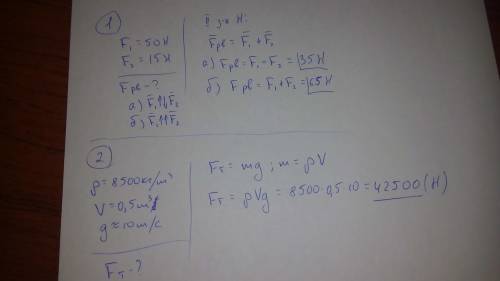 1
F₁ = 50 Н
F₂ = 15 Н
Fрв - ?
а) F̄₁↑↓F̄₂
б) F̄₁↑↑F̄₂
II з-н Н:
F̄рв = F̄₁ + F̄₂
а) Fрв = F₁ - F₂ = 35 Н
б) Fрв = F₁ + F₂ = 65 Н
2
ρ = 8500 кг/м³
V = 0,5 м³
g ≈ 10 м/с
Fт - ?
Fт = mg ; m = ρV
Fт = ρVg = 8500·0,5·10 = 42500 (Н)